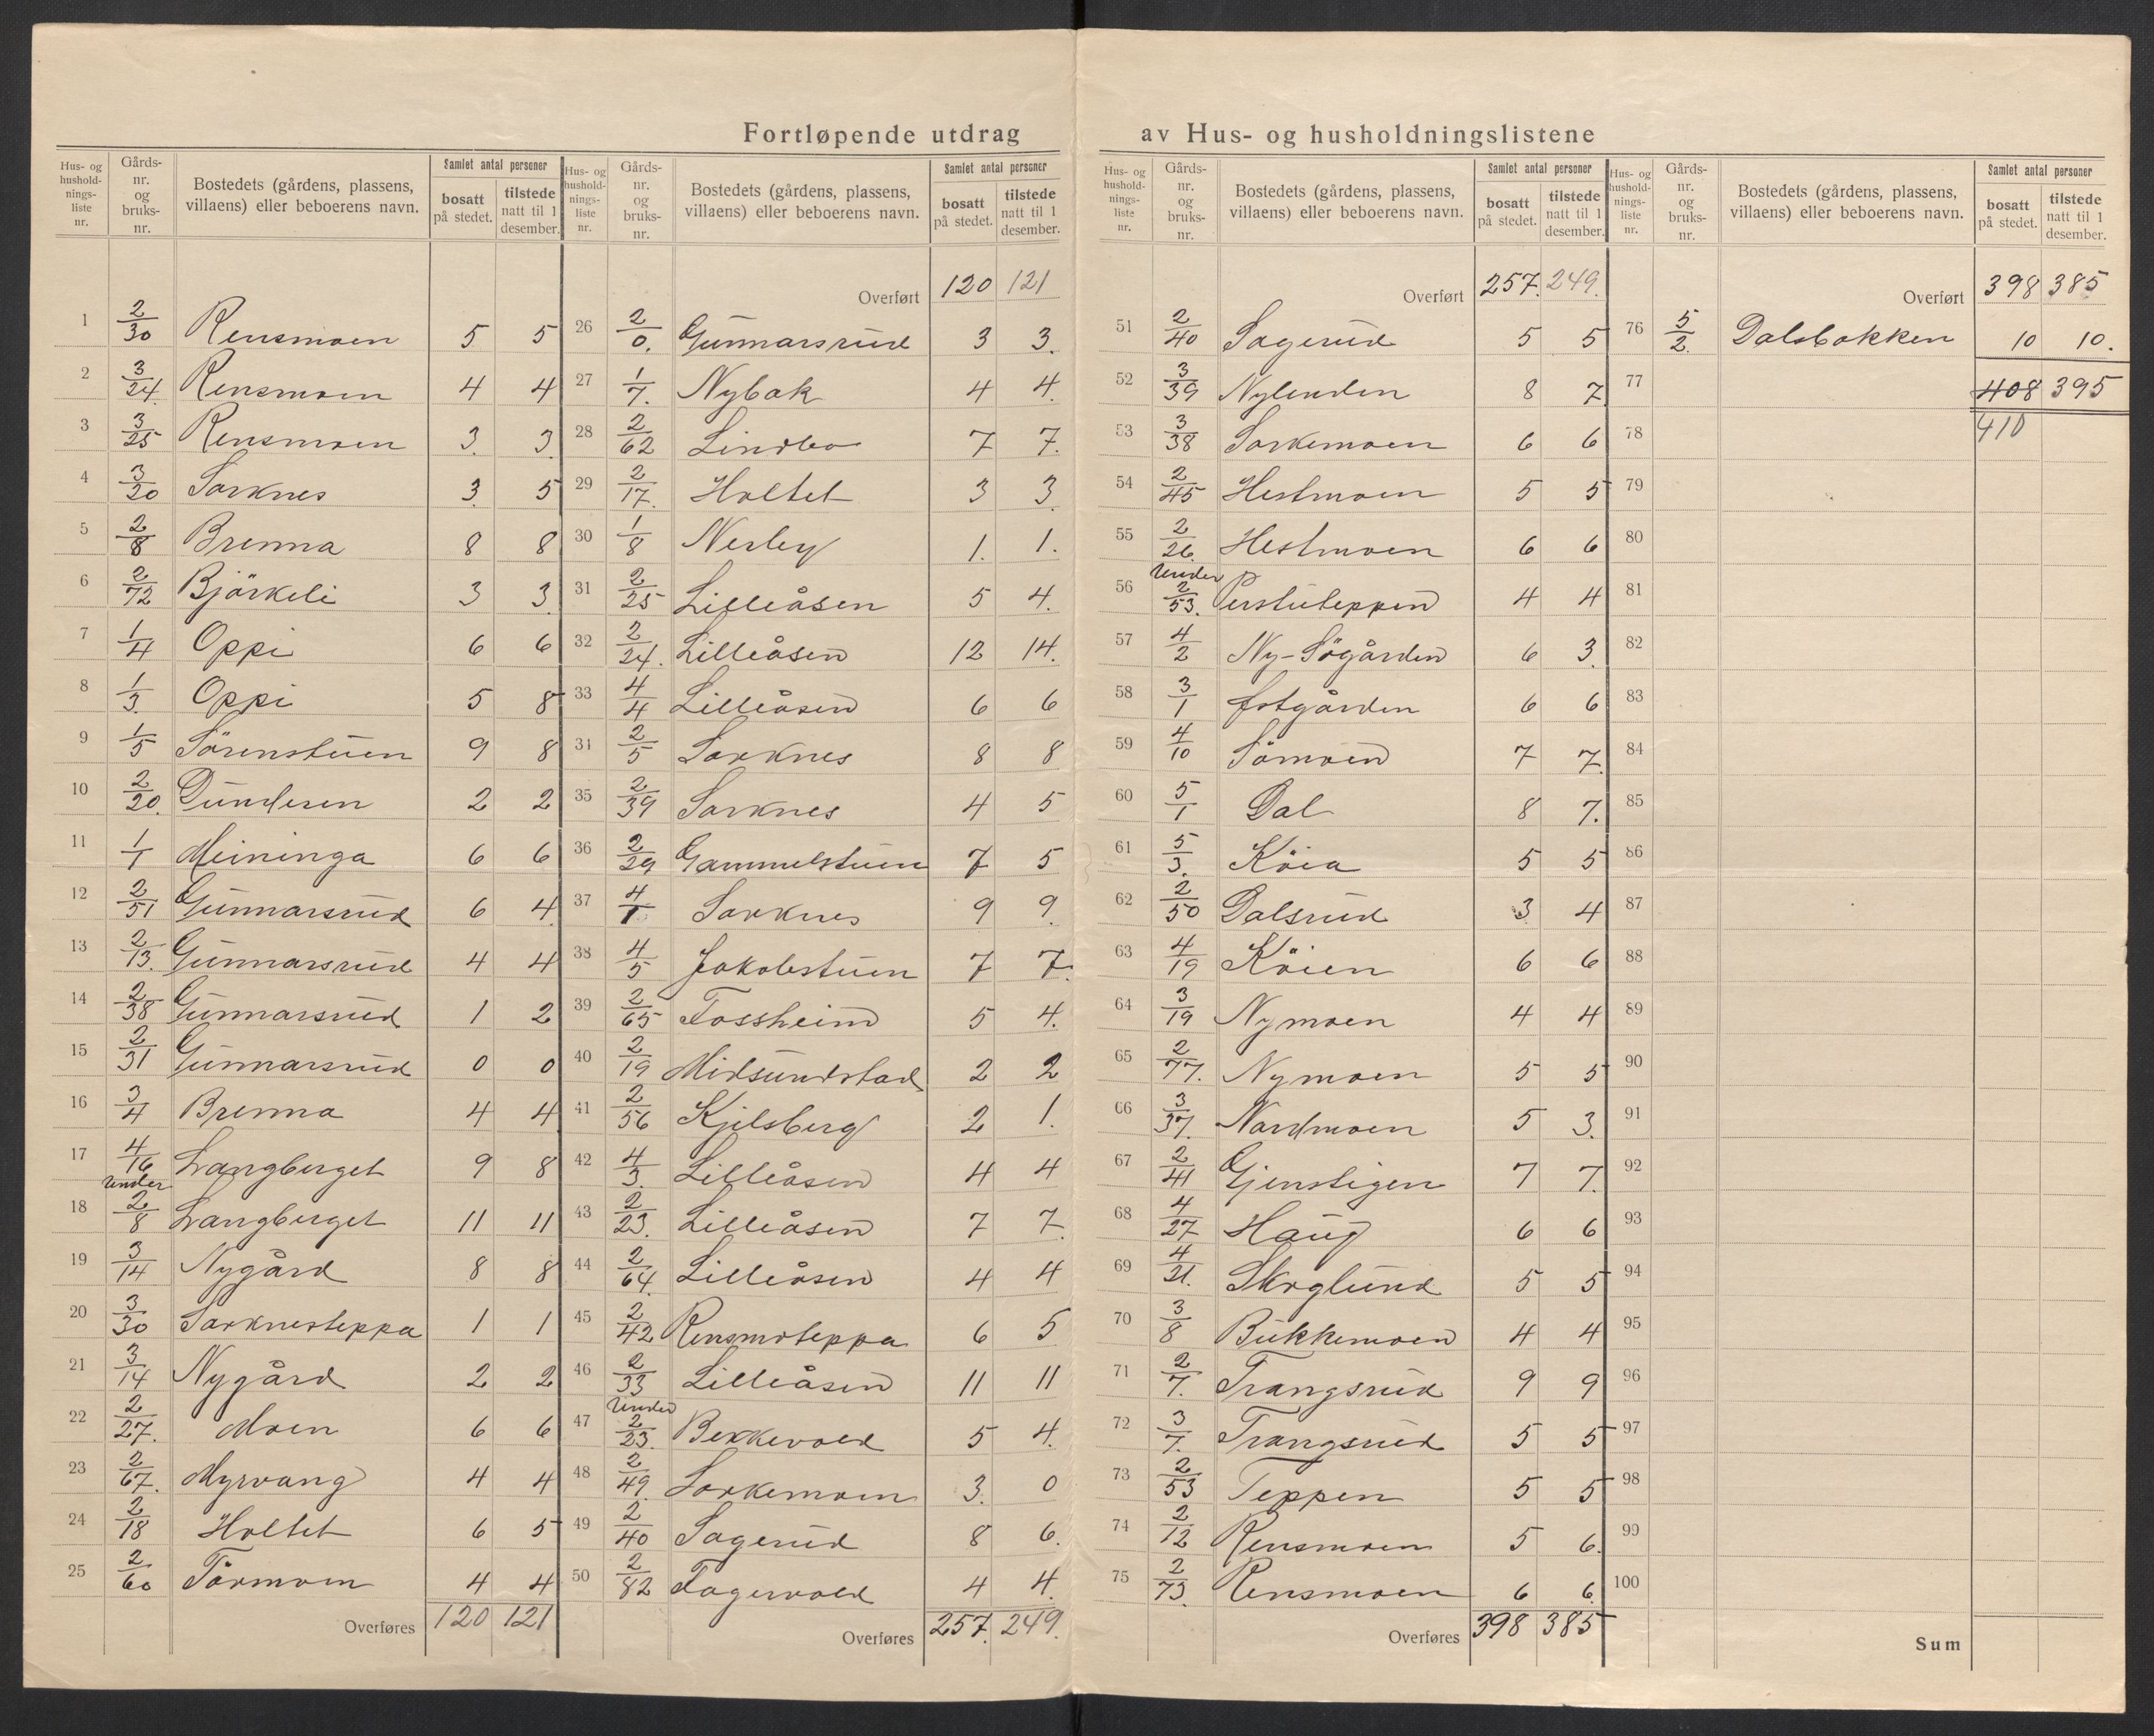 Fortløpende utdrag av Hus- og husholdningslistene
Hus- og husholdnings-liste nr. Gårds-nr. og bruks-nr. Bostedets (gårdens, plassens, villaens) eller beboerens navn. Samlet antal personer bosatt på stedet. tilstede natt til 1 desember.
1 2/30 Rensmoen 5 5
2 3/24 Rensmoen 4 4
3 3/25 Rensmoen 3 3
4 3/20 Sorknes 3 5
5 2/8 Brenna 8 8
6 2/72 Björkeli 3 3
7 1/4 Oppi 6 6
8 1/3 Oppi 5 8
9 1/5 Sörenstuen 9 8
10 2/20 Dunderen 2 2
11 1/1 Meininga 6 6
12 2/51 Gunnarsrud 6 4
13 2/13 Gunnarsrud 4 4
14 2/38 Gunnarsrud 1 2
15 2/31 Gunnarsrud 0 0
16 3/4 Brenna 4 4
17 4/16 Langberget 9 8
18 under 2/8 Langberget 11 11
19 3/14 Nygård 8 8
20 3/30 Sorknesteppa 1 1
21 3/14 Nygård 2 2
22 2/27 Moen 6 6
23 2/67 Myrvang 4 4
24 2/18 Holtet 6 5
25 2/60 Törmoen 4 4
Overføres 120 121
Hus- og husholdnings-liste nr. Gårds-nr. og bruks-nr. Bostedets (gårdens, plassens, villaens) eller beboerens navn. Samlet antal personer bosatt på stedet. tilstede natt til 1 desember.
Overført 120 121
26 2/0 Gunnarsrud 3 3
27 1/7 Nybak 4 4
28 2/62 Lindbo 7 7
29 2/17 Holtet 3 3
30 1/8 Nerby 1 1
31 2/25 Lilleåsen 5 4
32 2/24 Lilleåsen 12 14
33 4/4 Lilleåsen 6 6
34 2/5 Sorknes 8 8
35 2/39 Sorknes 4 5
36 2/29 Gammelstuen 7 5
37 4/1 Sorknes 9 9
38 4/5 Jakobstuen 7 7
39 2/65 Fossheim 5 4
40 2/19 Midsundstad 2 2
41 2/56 Kjelsberg 2 1
42 4/3 Lilleåsen 4 4
43 2/23 Lilleåsen 7 7
44 2/64 Lilleåsen 4 4
45 2/42 Rensmoteppa 6 5
46 2/33 Lilleåsen 11 11
47 under 2/23 Bekkevold 5 4
48 2/49 Sorkemoen 3 0
49 2/40 Sagerud 8 6
50 2/82 Fagervold 4 4
Overføres 257 249
Hus- og husholdnings-liste nr. Gårds-nr. og bruks-nr. Bostedets (gårdens, plassens, villaens) eller beboerens navn. Samlet antal personer bosatt på stedet. tilstede natt til 1 desember.
Overført 257 249
51 2/40 Sagerud 5 5
52 3/39 Nylenden 8 7
53 3/38 Sorkemoen 6 6
54 2/45 Hestmoen 5 5
55 2/26 Hestmoen 6 6
56 under 2/53 Perstuteppen 4 4
57 4/2 Ny-Sögården 6 3
58 3/1 Østgården 6 6
59 4/10 Sömoen 7 7
60 5/1 Dal 8 7
61 5/3 Köia 5 5
62 2/50 Dalsrud 3 4
63 4/19 Köien 6 6
64 3/19 Nymoen 4 4
65 2/77 Nymoen 5 5
66 3/37 Nordmoen 5 3
67 2/41 Gjenstigen 7 7
68 4/27 Haug 6 6
69 4/21 Skoglund 5 5
70 3/8 Bukkemoen 4 4
71 2/7 Trangsrud 9 9
72 3/7 Trangsrud 5 5
73 2/53 Teppen 5 5
74 2/12 Rensmoen 5 6
75 2/73 Rensmoen 6 6
Overføres 398 385
Hus- og husholdnings-liste nr. Gårds-nr. og bruks-nr. Bostedets (gårdens, plassens, villaens) eller beboerens navn. Samlet antal personer bosatt på stedet. tilstede natt til 1 desember.
Overført 398 385
76 5/2 Dalsbakken 10 10
77 408 395
78 410
79
80
81
82
83
84
85
86
87
88
89
90
91
92
93
94
95
96
97
98
99
100
Sum